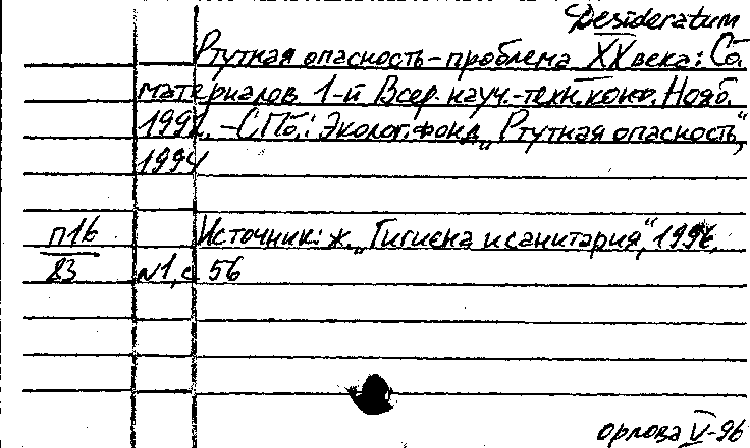 Desideratum
Ртутная опасность-проблема XX века: Сб.
материалов 1-й Всер. науч.-техн. конф. Нояб.
1992. -СПб.: Эколог. фонд „Ртутная опасность",
1994
п16 Источник: ж. „Гигиена и санитария", 1996,
83 №1, с 56
орлова V-96